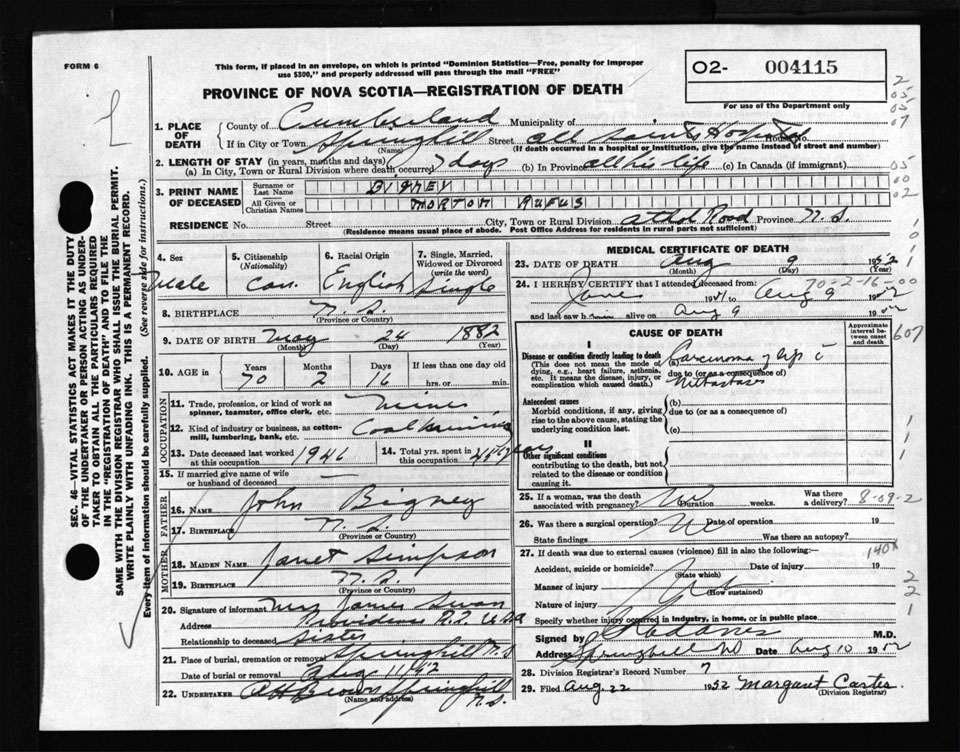 FORM 6
This form, if placed in an envelope, on which is printed "Dominion Statistics—Free, penalty for improper
use $300," and properly addressed will pass through the mail "FREE"
O2- 004115
For use of the Department only
PROVINCE OF NOVA SCOTIA—REGISTRATION OF DEATH
1. PLACE OF DEATH
County of Cumberland Municipality of
If in City or Town Springhill Street All Saints Hospital House No.
(Name) (If death occurred in a hospital or institution, give the name instead of street and number)
2. LENGTH OF STAY (in years, months and days)
(a) In City, Town or Rural Division where death occurred 7 days (b) In Province all his life (c) In Canada (if immigrant)
3. PRINT NAME OF DECEASED
Surname or Last Name BIGNEY
All Given or Christian Names MORTON RUFUS
RESIDENCE No. Street City, Town or Rural Division Athol Road Province N.S.
(Residence means usual place of abode. Post Office Address for residents in rural parts not sufficient)
4. Sex Male
5. Citizenship (Nationality) Can.
6. Racial Origin English
7. Single, Married, Widowed or Divorced (write the word) Single
8. BIRTHPLACE N.S.
(Province or Country)
9. DATE OF BIRTH May 24 1882
(Month) (Day) (Year)
10. AGE in Years 70 Months 2 Days 16 If less than one day old hrs. or min.
OCCUPATION
11. Trade, profession, or kind of work as spinner, teamster, office clerk, etc. Miner
12. Kind of industry or business, as cotton-mill, lumbering, bank, etc. Coal mining
13. Date deceased last worked at this occupation 1941
14. Total yrs. spent in this occupation years
15. If married give name of wife or husband of deceased
FATHER
16. NAME John Bigney
17. BIRTHPLACE N.S.
(Province or Country)
MOTHER
18. MAIDEN NAME Janet Simpson
19. BIRTHPLACE N.S.
(Province or Country)
20. Signature of informant Mrs James Swan
Address Providence R.I. USA
Relationship to deceased Sister
21. Place of burial, cremation or removal Springhill N.S.
Date of burial or removal Aug 11/52
22. UNDERTAKER Brown Springhill N.S.
(Name and address)
MEDICAL CERTIFICATE OF DEATH
23. DATE OF DEATH Aug 9 1952
(Month) (Day) (Year)
70-2-16-00
24. I HEREBY CERTIFY that I attended deceased from:
June 19 to Aug 9 1952
and last saw him alive on Aug 9 1952
CAUSE OF DEATH
Approximate interval between onset and death
607
I
Disease or condition directly leading to death
(This does not mean the mode of dying, e.g., heart failure, asthenia, etc. It means the disease, injury, or complication which caused death.)
(a) Carcinoma of lip c
due to (or as a consequence of)
Metastases
Antecedent causes
Morbid conditions, if any, giving rise to the above cause, stating the underlying condition last.
(b)
due to (or as a consequence of)
(c)
II
Other significant conditions
contributing to the death, but not related to the disease or condition causing it.
25. If a woman, was the death associated with pregnancy? Duration weeks. Was there a delivery? 8-09-2
26. Was there a surgical operation? No Date of operation 19
State findings Was there an autopsy?
27. If death was due to external causes (violence) fill in also the following:—
Accident, suicide or homicide? Date of injury 19
(State which)
Manner of injury
(How sustained)
Nature of injury
Specify whether injury occurred in industry, in home, or in public place
Signed by M.D.
Address Springhill NS Date Aug 10 1952
28. Division Registrar's Record Number 7
29. Filed Aug. 22 1952 Margaret
(Division Registrar)
SEC. 46—VITAL STATISTICS ACT MAKES IT THE DUTY
OF THE UNDERTAKER OR PERSON ACTING AS UNDER-
TAKER TO OBTAIN ALL THE PARTICULARS REQUIRED
IN THE "REGISTRATION OF DEATH" AND TO FILE THE
SAME WITH THE DIVISION REGISTRAR WHO SHALL ISSUE THE BURIAL PERMIT.
WRITE PLAINLY WITH UNFADING INK. THIS IS A PERMANENT RECORD.
Every item of information should be carefully supplied. (See reverse side for instructions.)